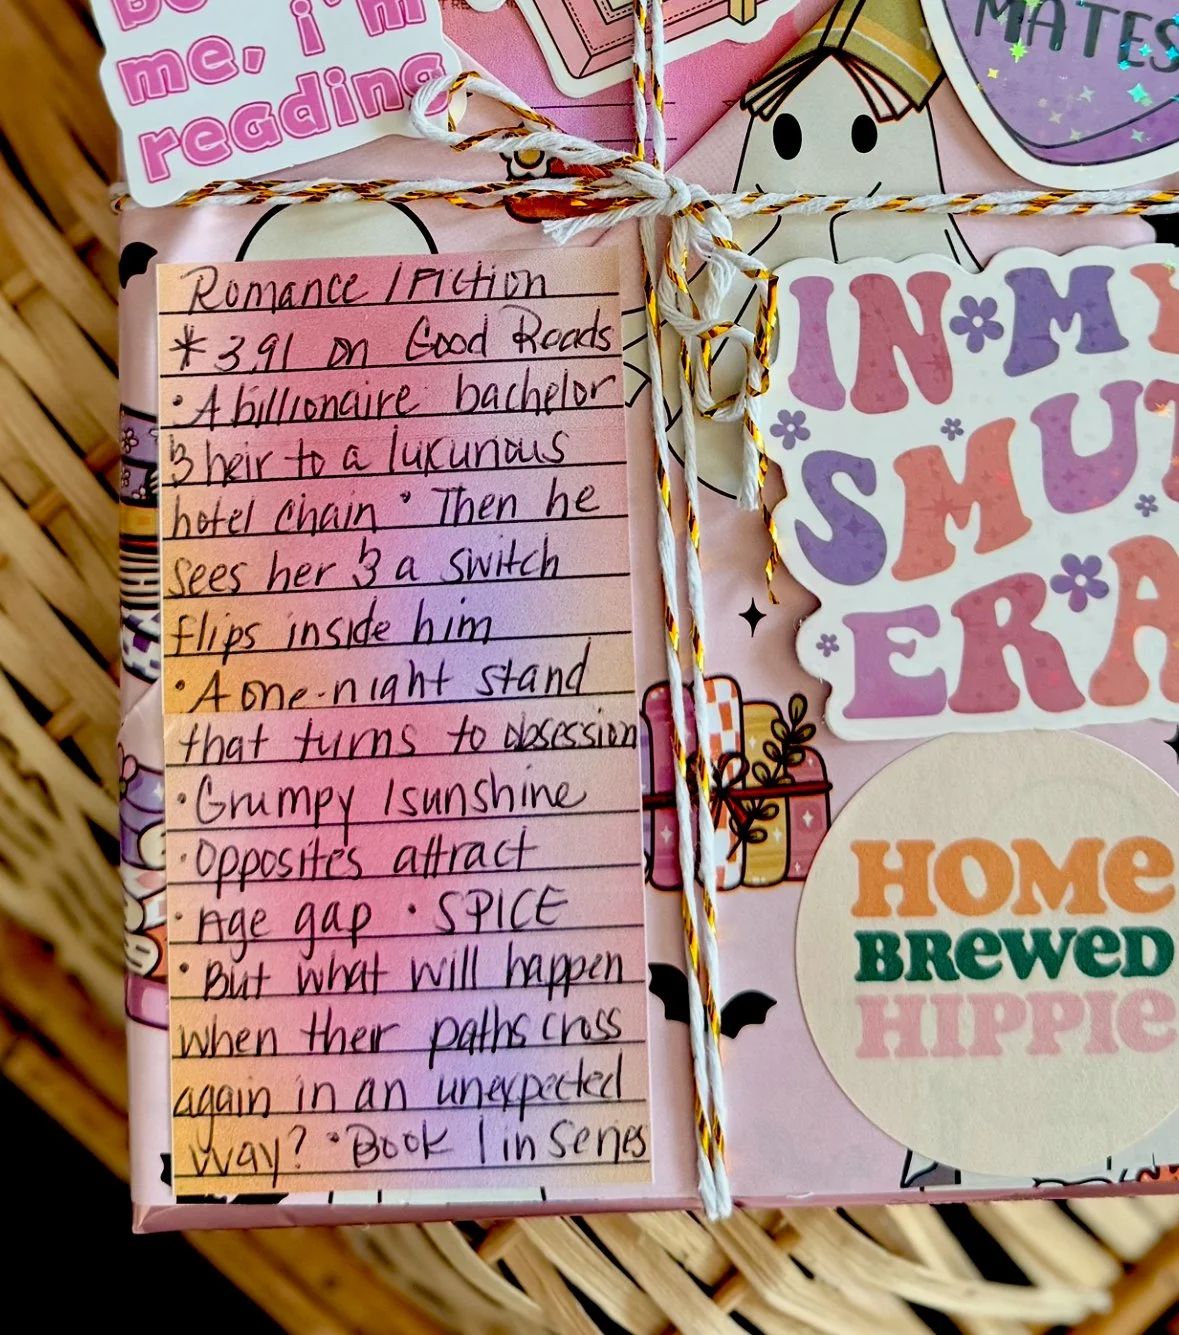 me, i'm
reading
MATES
Romance / Fiction
* 3.91 on Good Reads
• A billionaire bachelor
& heir to a luxurious
hotel chain • Then he
sees her & a switch
flips inside him
• A one-night stand
that turns to obsession
• Grumpy / sunshine
• Opposites attract
• Age gap • SPICE
• But what will happen
when their paths cross
again in an unexpected
way? • Book 1 in Series
IN MY
SMUT
ERA
HOME
BREWED
HIPPIE